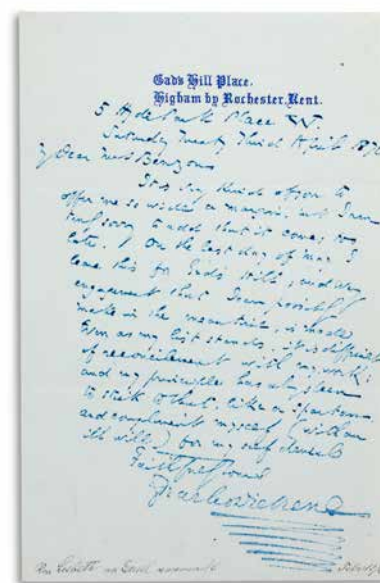 Gad's Hill Place.
Higham by Rochester, Kent.
5 Hyde Park Place W.
Saturday Twenty Third April 1870
My Dear Mrs Benzon
It is very kind of you to
offer me so wide a margin, but I am
sorry to add that it comes too
late. On the last day of May I
leave this for Gad's Hill; and any
engagement that I can possibly
make in the meantime, is made
Even as my list stands, it is difficult
of reconcilement with my work;
and my principle has always been
to stick to that, like a Spartan
and compliment myself (with an
ill will) on my self denial
Faithfully yours
Charles Dickens